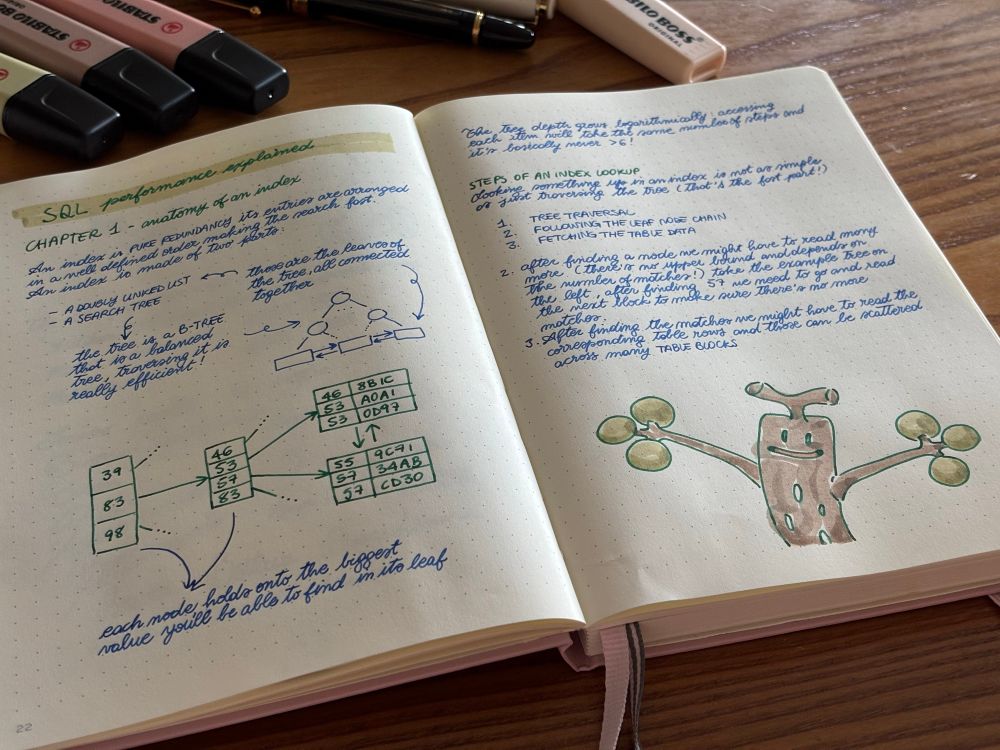 STABILO BOSS
ORIGINAL
STABILO BOSS
ORIGINAL
STABILO BOSS
ORIGINAL
SQL performance explained
CHAPTER 1 - anatomy of an index
An index is PURE REDUNDANCY its entries are arranged
in a well defined order making the search fast.
An index is made of two parts:
- A DOUBLY LINKED LIST
- A SEARCH TREE
those are the leaves of
the tree, all connected
together
the tree is a B-TREE
that is a balanced
tree, traversing it is
really efficient!
39
83
98
46
53
57
83
46 8B1C
53 A0A1
53 0D97
55 9C71
57 34AB
57 CD30
each node holds onto the biggest
value you'll be able to find in its leaf
22
The tree depth grows logarithmically, accessing
each item will take the same number of steps and
it's basically never >6!
STEPS OF AN INDEX LOOKUP
Looking something up in an index is not as simple
as just traversing the tree (that's the fast part!)
1. TREE TRAVERSAL
2. FOLLOWING THE LEAF NODE CHAIN
3. FETCHING THE TABLE DATA
2. after finding a node we might have to read many
more (there is no upper bound and depends on
the number of matches!) take the example tree on
the left, after finding 57 we need to go and read
the next block to make sure there's no more
matches.
3. After finding the matches we might have to read the
corresponding table rows and those can be scattered
across many TABLE BLOCKS